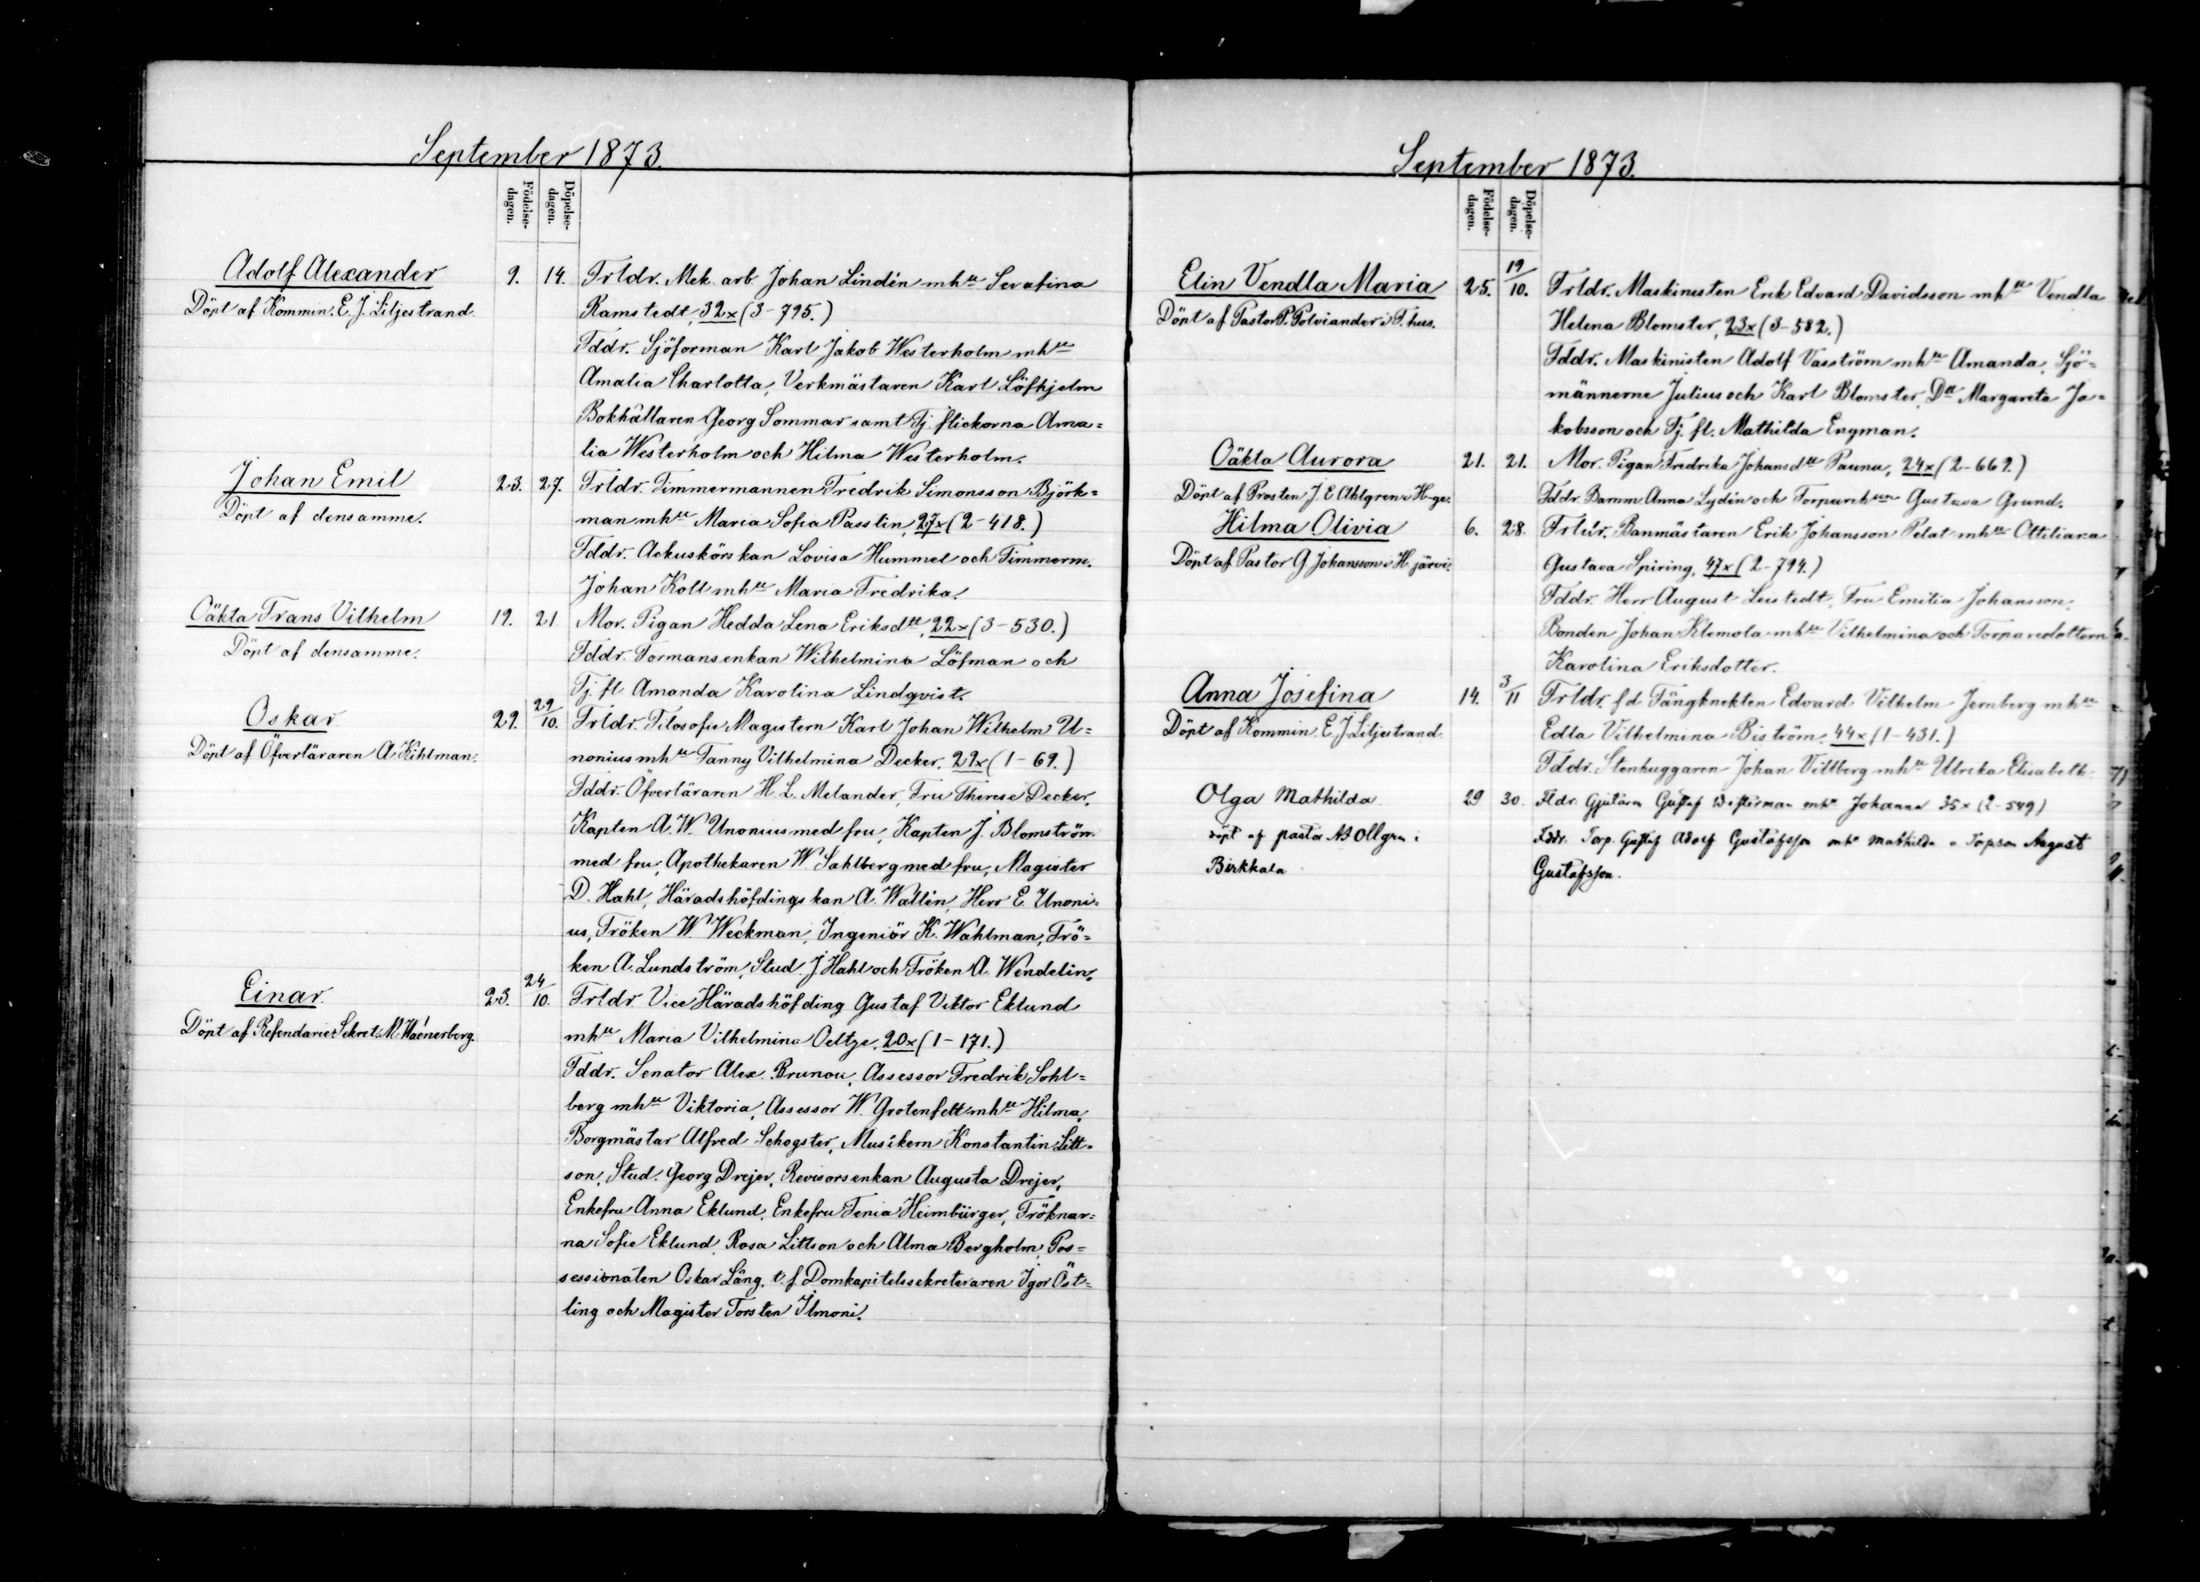 September 1873.
Födelse-
dagen.
Döpelse-
dagen.
Adolf Alexander 9. 14. Frldr. Mek. arb. Johan Lindén mh:u Serafina
Döpt af Kommin. E. J. Liljestrand. Ramstedt, 32x (3-795.)
Fddr. Sjöforman Karl Jakob Westerholm mh:u
Amalia Charlotta, Verkmästaren Karl Löfhjelm
Bokhållaren Georg Sommar samt Tj. flickorna Ama=
lia Westerholm och Hilma Westerholm.
Johan Emil 23. 27. Frldr. Timmermannen Fredrik Simonsson Björk=
Döpt af densamme. man mh:u Maria Sofia Passlin, 27x (2-418.)
Fddr. Ackuskörskan Lovisa Hummel och Timmerm.
Johan Koll mh:u Maria Fredrika.
Oäkta Frans Vilhelm 19. 21 Mor. Pigan Hedda Lena Eriksd:tr, 22x (3-530.)
Döpt af densamme. Fddr. Formansenkan Wilhelmina Löfman och
Tj. fl Amanda Karolina Lindqvist.
Oskar 29. 29/10. Frldr. Filosofie Magistern Karl Johan Wilhelm U=
Döpt af Öfverläraren A. Kihlman. nonius mh:u Fanny Vilhelmina Decker, 29x (1-69.)
Fddr. Öfverläraren H. L. Melander, Fru Therese Decker,
Kapten A. W. Unonius med fru, Kapten J. Blomström
med fru, Apothekaren W. Sahlberg med fru, Magister
D. Hahl, Häradshöfdingskan A. Wallén, Herr E. Unoni=
us, Fröken W. Weckman, Ingeniör K. Wahlman, Frö=
ken A. Lundström, Stud. J. Hahl och Fröken A. Wendelin.
Einar. 23. 24/10. Frldr. Vice Häradshöfding Gustaf Viktor Eklund
Döpt af Refendarie Sekret. M. Waenerberg. mh:u Maria Vilhelmina Oeltze, 20x (1-171.)
Fddr. Senator Alex. Brunou, Assessor Fredrik Sohl=
berg mh:u Viktoria, Assessor W. Grotenfelt mh:u Hilma,
Borgmästar Alfred Schogster, Musikern Konstantin Litt=
son, Stud. Georg Drejer, Revisorsenkan Augusta Drejer,
Enkefru Anna Eklund, Enkefru Fenia Heimbürger, Fröknar=
na Sofie Eklund, Rosa Littson och Alma Bergholm, Pos=
sessionaten Oskar Lång, t. f. Domkapitelssekreteraren Igor Öst=
ling och Magister Torsten Ilmoni.
September 1873.
Födelse-
dagen.
Döpelse-
dagen.
Elin Vendla Maria 25. 19/10. Frldr. Maskinisten Erik Edvard Davidsson mh:u Vendla
Döpt af Pastor P. Polviander i T. hus. Helena Blomster, 23x (3-582.)
Fddr. Maskinisten Adolf Vasström mh:u Amanda, Sjö=
männerne Julius och Karl Blomster, D:tr Margareta Ja=
kobsson och Tj. fl. Mathilda Engman.
Oäkta Aurora 21. 21. Mor. Pigan Fredrika Johansd:tr Paunu, 24x (2-669.)
Döpt af Prosten J. E. Ahlgren i H-ge. Fddr. Barnm. Anna Lydén och Gustava Grund.
Hilma Olivia 6. 28. Frldr. Banmästaren Erik Johansson Pelat mh:u Ottiliana
Döpt af Pastor G. Johansson i H. järvi. Gustava Spiring, 47x (2-794.)
Fddr. Herr August Leistedt, Fru Emilia Johansson,
Bonden Johan Klemola mh:u Vilhelmina och Torparedottern
Karolina Eriksdotter.
Anna Josefina 14. 3/11 Frldr. f d Fångknekten Edvard Vilhelm Jernberg mh:u
Döpt af Kommin. E. J. Liljestrand. Edla Vilhelmina Biström, 44x (1-431.)
Fddr. Stenhuggaren Johan Villberg mh:u Ulrika Elisabeth
Olga Mathilda. 29 30. Fldr. Gjutaren Gustaf Westerman mh:u Johanna 35x (2-549)
döpt af pastor AB Ollgren i Fddr. Torp. Gustaf Adolf Gustafsson mh:u Mathilda o Torpson August
Birkkala Gustafsson.